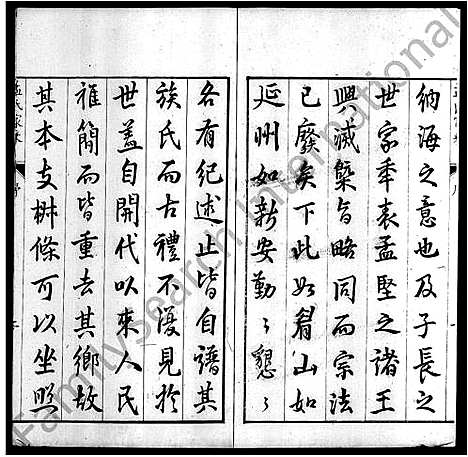 納海之意也及子長之
世家車表孟堅之諸王
興滅槩旨略同而宗法
已廢矣下此如眉山如
延州如新安勤〻懇〻
各有紀述止皆自譜其
族氏而古禮不復見於
世蓋自開代以來人民
雖簡而皆重去其鄉故
其本支栟條可以坐照
孟氏家乘
序
FamilySearch International